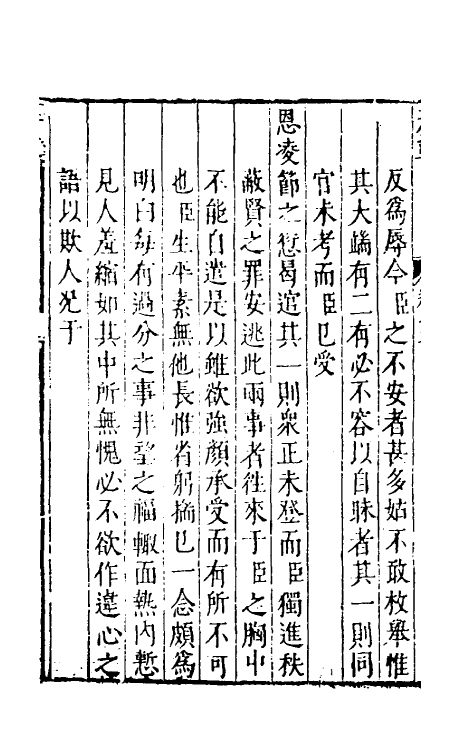 反爲辱今臣之不安者甚多姑不敢枚舉惟
其大端有二有必不容以自昧者其一則同
官未考而臣已受
恩凌節之愆曷逭其一則衆正未登而臣獨進秩
蔽賢之罪安逃此兩事者徃來于臣之胸中
不能自遣是以雖欲強顔承受而有所不可
也臣生平素無他長惟省躬揣已一念頗爲
明白每有過分之事非望之福輙面熱內慙
見人羞縮如其中所無愧必不欲作違心之
語以欺人况于